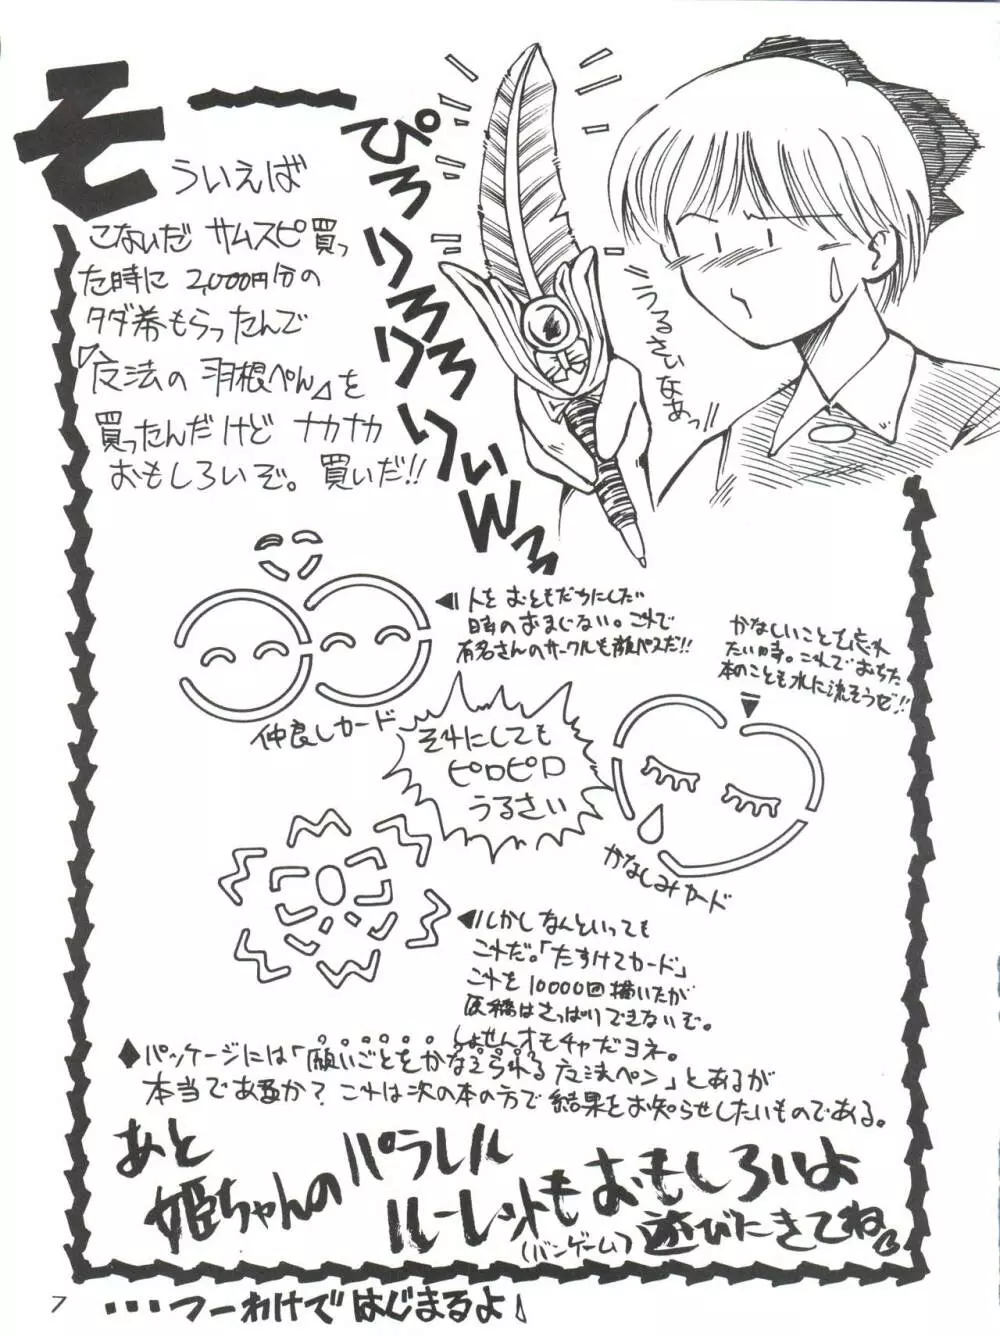 そーういえば
こないだ サムスピ買っ
た時に 2,000円分の
タダ券もらったんで
「魔法の羽根ぺん」を
買ったんだけど ナカナカ
おもしろいぞ。買いだ!!
ぴろりろりろりろりぃWろ
うるさいなぁっ!!
人をおともだちにしたい
時のおまじない。これで
有名さんのサークルも顔パスだ!!
仲良しカード
かなしいことを忘れ
たい時。これでおちた
本のことも水に流そうぜ!!
それにしても
ピロピロ
うるさい
かなしみカード
しかしなんといっても
これだ。「たすけてカード」
これを10000回描いたが
原稿はさっぱりできないぞ。
しょせんオモチャだヨネ。
パッケージには「願いごとをかなえられる魔法ペン」とあるが
本当であるか?これは次の本の方で結果をお知らせしたいものである。
あと
姫ちゃんのパラレル
ルーレットもおもしろいよ
(バンゲーム)遊びにきてね
・・・つーわけではじまるよ
7